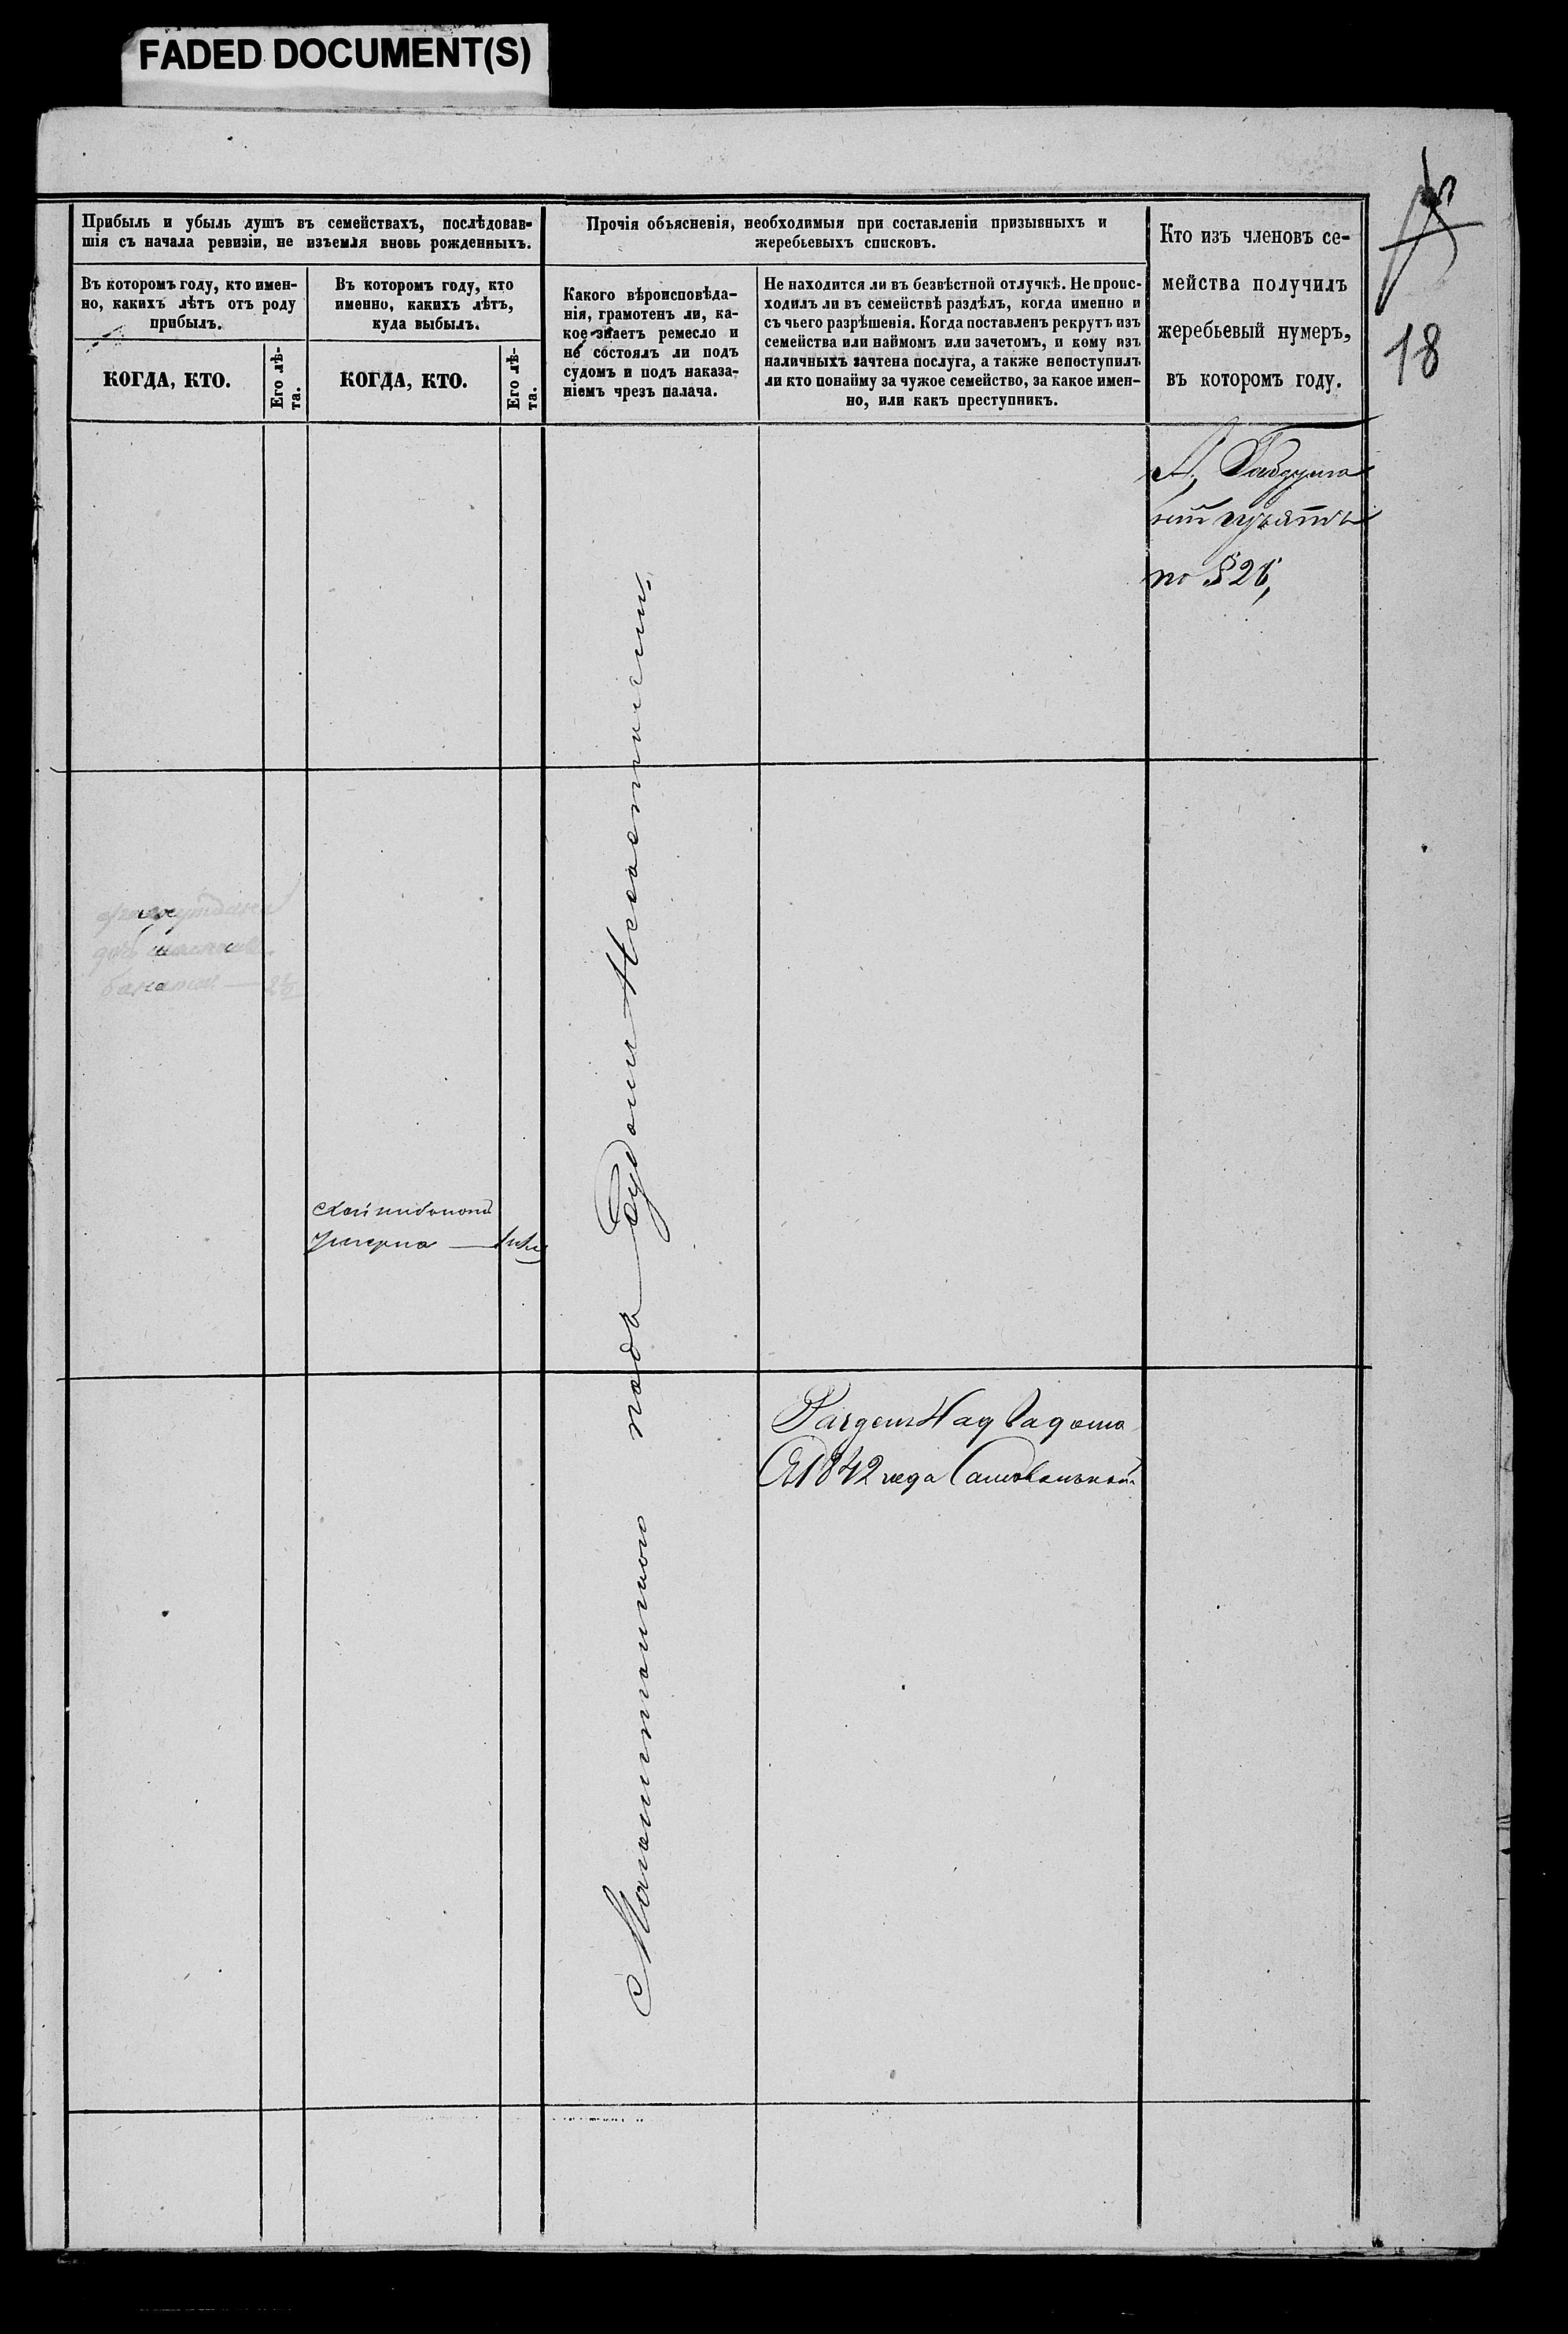 FADED DOCUMENT(S)
18
Прибыль и убыль душъ въ семействахъ, послѣдовав-
шія съ начала ревизіи, не изъемля вновь рожденныхъ.
Въ которомъ году, кто имен-
но, какихъ лѣтъ отъ роду
прибылъ.
КОГДА, КТО.
Его лѣ-
та.
Въ которомъ году, кто
именно, какихъ лѣтъ,
куда выбылъ.
КОГДА, КТО.
Его лѣ-
та.
Прочія объясненія, необходимыя при составленіи призывныхъ и
жеребьевыхъ списковъ.
Какого вѣроисповѣда-
нія, грамотенъ ли, ка-
кое знаетъ ремесло и
не состоялъ ли подъ
судомъ и подъ наказа-
ніемъ чрезъ палача.
Не находится ли въ безвѣстной отлучкѣ. Не проис-
ходилъ ли въ семействѣ раздѣлъ, когда именно и
съ чьего разрѣшенія. Когда поставленъ рекрутъ изъ
семейства или наймомъ или зачетомъ, и кому изъ
наличныхъ зачтена послуга, а также непоступилъ
ли кто понайму за чужое семейство, за какое имен-
но, или какъ преступникъ.
Кто изъ членовъ се-
мейства получилъ
жеребьевый нумеръ,
въ которомъ году.
по §
умерла
Магометанскаго подъ Судомъ Несостояли
1842 года Самовольной